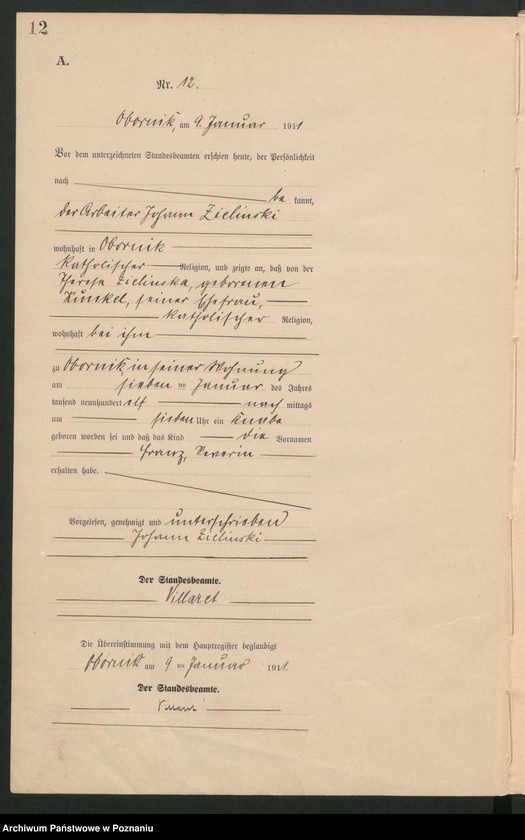 12
A.
Nr. 12.
Obornik, am 9. Januar 1911
Vor dem unterzeichneten Standesbeamten erschien heute, der Persönlichkeit
nach
be kannt,
der Arbeiter Johann Zielinski
wohnhaft in Obornik
katholischer Religion, und zeigte an, daß von der
Therese Zielinska, geborenen
Kunkel, seiner Ehefrau,
katholischer Religion,
wohnhaft bei ihm
zu Obornik, in seiner Wohnung
am sieben ten Januar des Jahres
tausend neunhundert elf nach mittags
um sieben Uhr ein Knabe
geboren worden sei und daß das Kind die Vornamen
Franz, Severin
erhalten habe.
Vorgelesen, genehmigt und unterschrieben
Johann Zielinski
Der Standesbeamte.
Villaret
Die Übereinstimmung mit dem Hauptregister beglaubigt
Obornik am 9 ten Januar 1911.
Der Standesbeamte.
Villaret
Archiwum Państwowe w Poznaniu